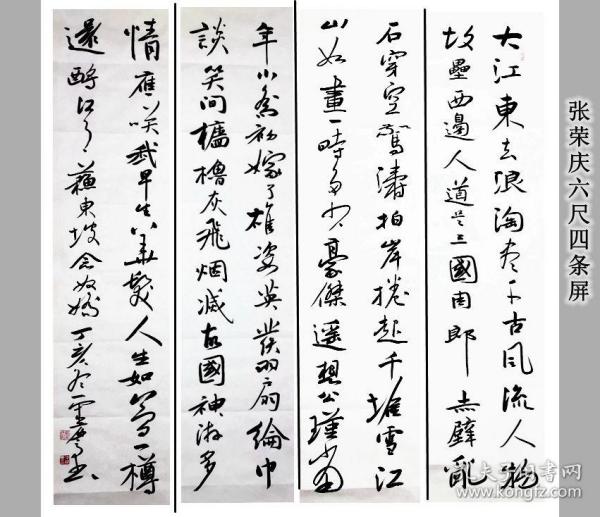 张荣庆六尺四条屏
大江東去浪淘尽千古風流人物
故壘西邊人道是三國周郎赤壁亂
石穿空驚濤拍岸捲起千堆雪江
山如畫一時多少豪傑遥想公瑾當
年小喬初嫁了雄姿英發羽扇綸巾
談笑间檣櫓灰飛烟滅故國神游多
情應笑我早生華髮人生如夢一樽
還酹江月蘇東坡念奴嬌丁亥冬
孔夫子旧书网
www.kongfz.com